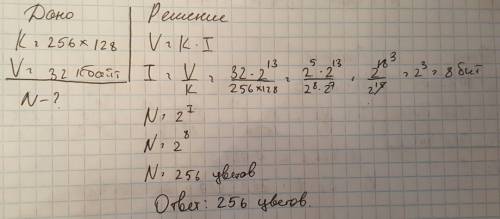 Дано
K = 256 × 128
V = 32 Кбайт
N - ?
Решение
V = K · I
I = V/K = 32 · 2^13 / 256×128 = 2^5 · 2^13 / 2^8 · 2^7 = 2^18 3 / 2^15 = 2^3 = 8 бит
N = 2^I
N = 2^8
N = 256 цветов
Ответ: 256 цветов.